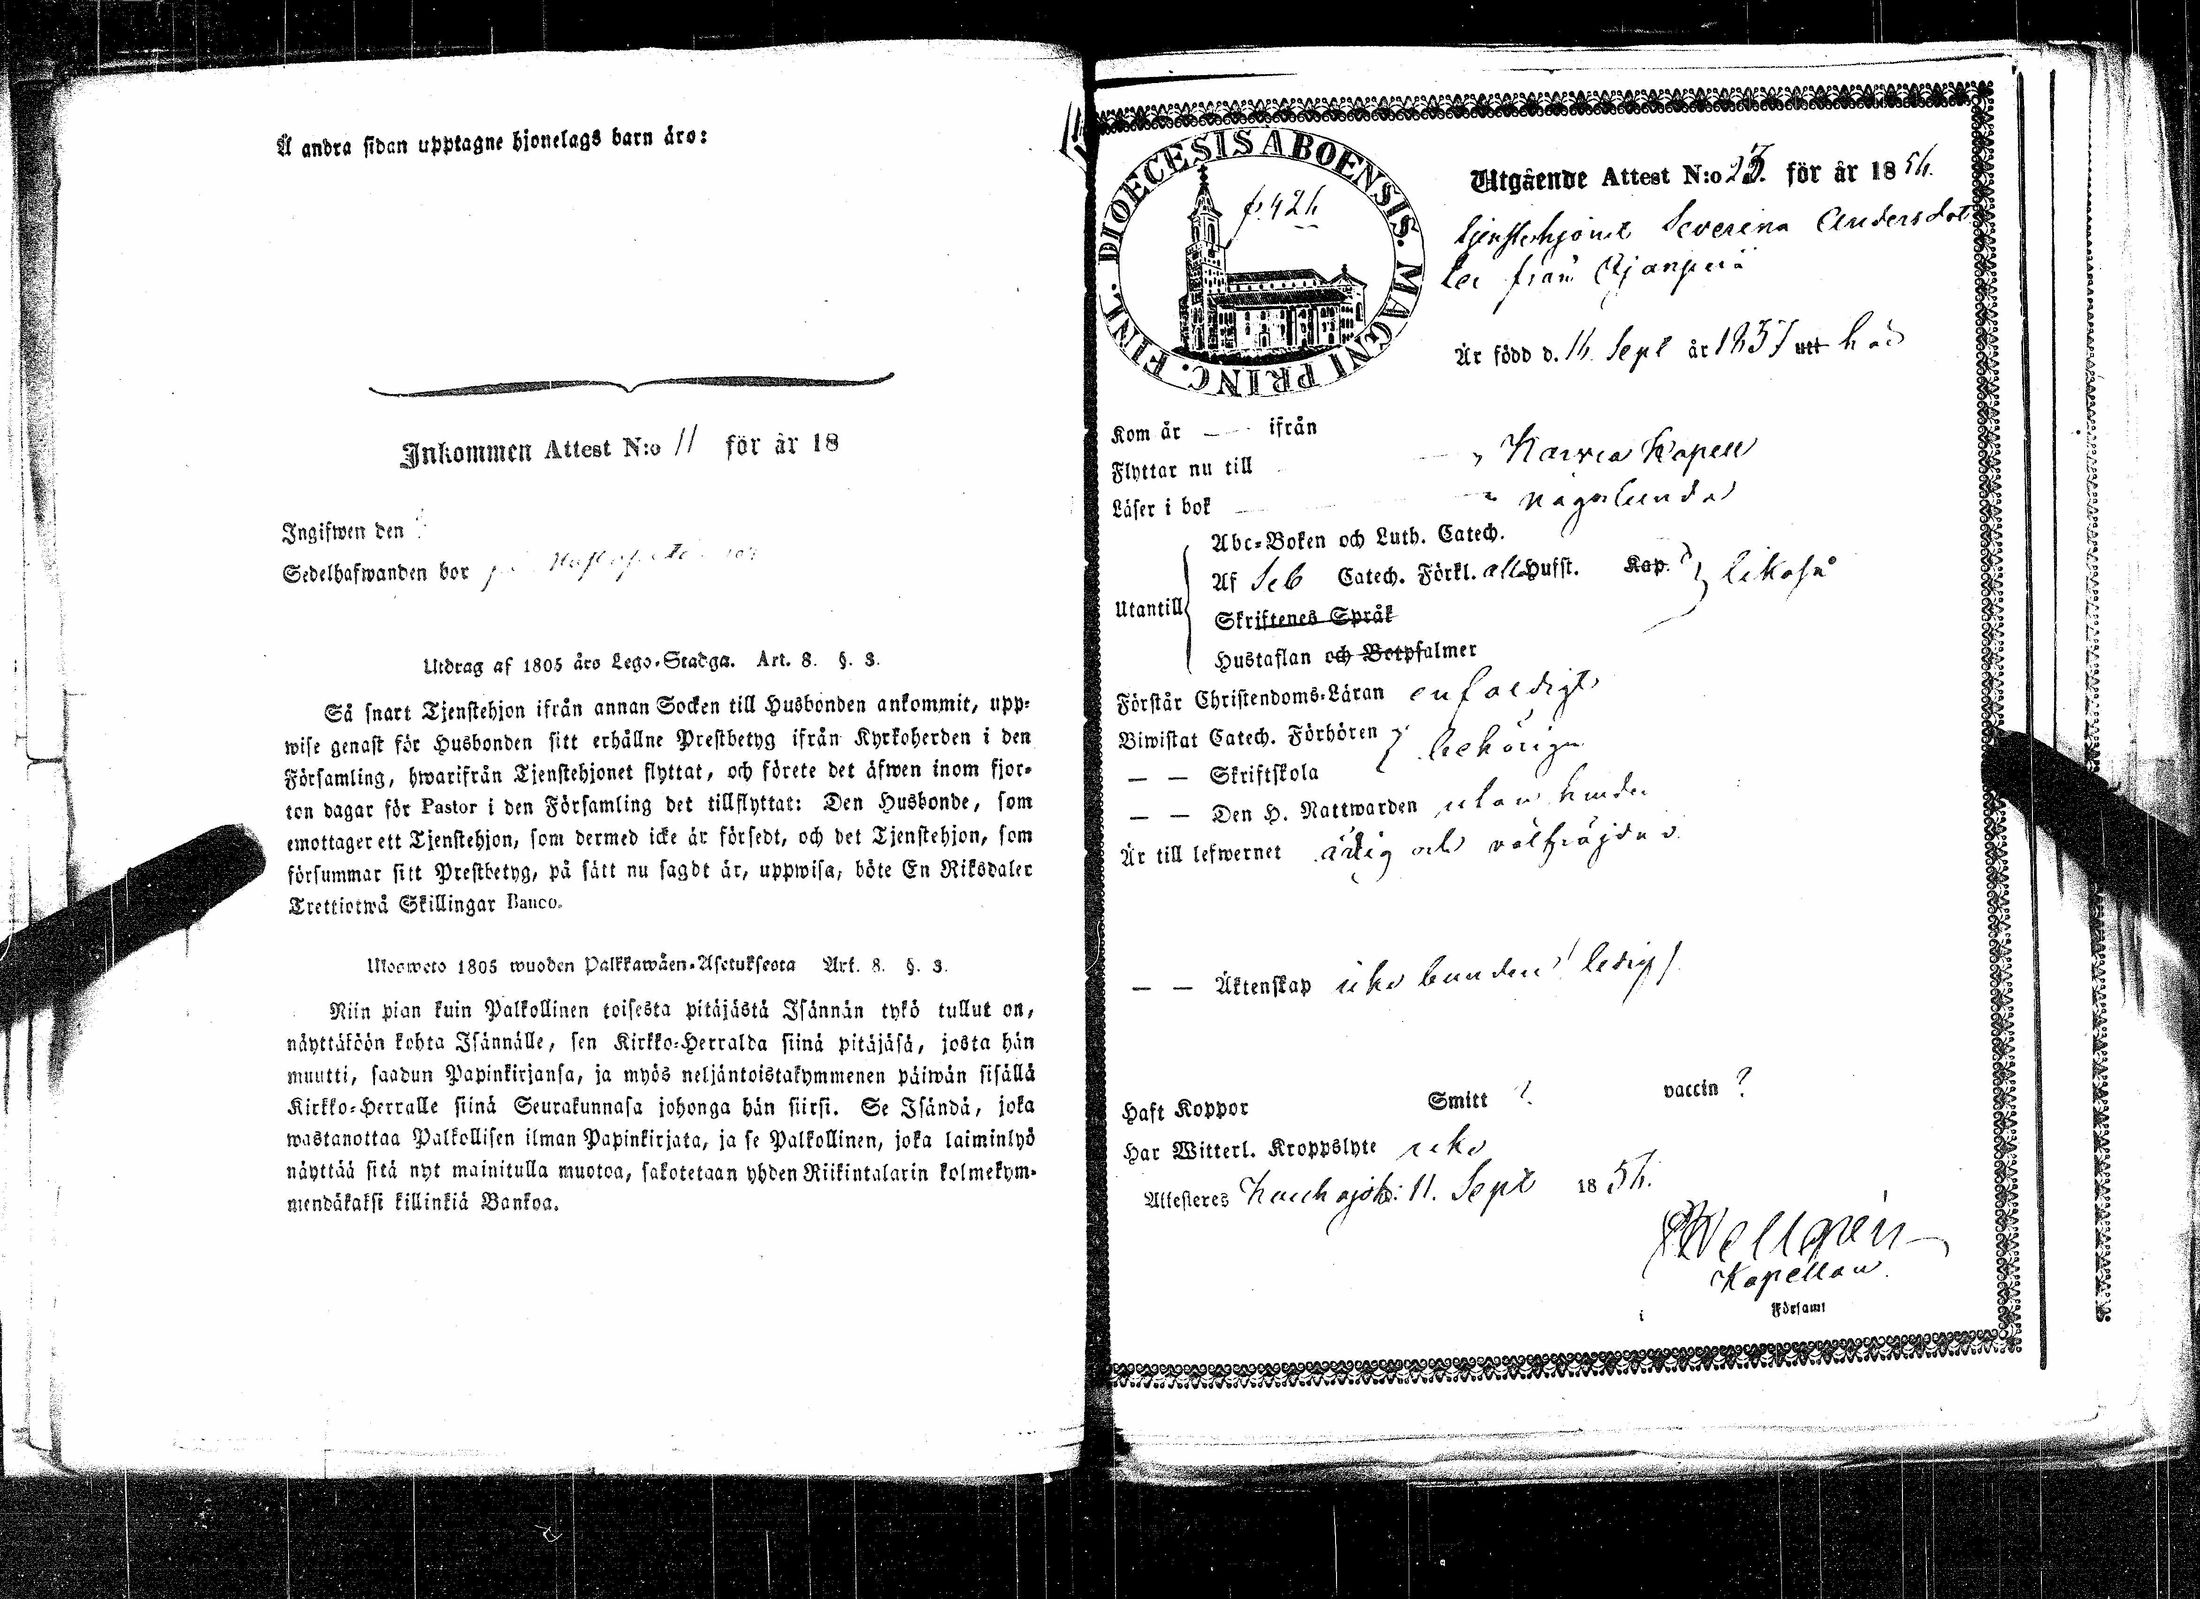 Å andra sidan upptagne hjonelags barn äro:
Inkommen Attest N:o 11 för år 18
Ingifwen den
Sedelhafwanden bor
Utdrag af 1805 års Lego-Stadga. Art. 8. §. 3.
Så snart Tjenstehjon ifrån annan Socken till Husbonden ankommit, upp-
wise genast för Husbonden sitt erhållne Prestbetyg ifrån Kyrkoherden i den
Församling, hwarifrån Tjenstehjonet flyttat, och förete det äfwen inom fjor-
ton dagar för Pastor i den Församling det tillflyttat: Den Husbonde, som
emottager ett Tjenstehjon, som dermed icke är försedt, och det Tjenstehjon, som
försummar sitt Prestbetyg, på sätt nu sagdt är, uppwisa, böte En Riksdaler
Trettiotwå Skillingar Banco.
Ulosweto 1805 wuoden Palkkawäen-Asetuksesta Art. 8. §. 3.
Niin pian kuin Palkollinen toisesta pitäjästä Isännän tykö tullut on,
näyttäköön kohta Isännälle, sen Kirkko-Herralda siinä pitäjäsä, josta hän
muutti, saadun Papinkirjansa, ja myös neljäntoistakymmenen päiwän sisällä
Kirkko-Herralle siinä Seurakunnasa johonga hän siirsi. Se Isändä, joka
wastanottaa Palkollisen ilman Papinkirjata, ja se Palkollinen, joka laiminlyö
näyttää sitä nyt mainitulla muotoa, sakotetaan yhden Riikintalarin kolmekym-
mendäkaksi killinkiä Bankoa.
DIOECESIS ABOENSIS. MAGNI PRINC. FINL.
p. 424
Utgående Attest N:o 23. för år 1854.
tjenstehjonet Severina Andersdot
ter från
Är född d. 14. Sept år 1837 utt här
Kom år — ifrån
Flyttar nu till " Karvia Kapell
Läser i bok " någorlunda
Abc-Boken och Luth. Catech.
Utantill Af Seb Catech. Förkl. alla Hufst. Kap. likaså
Skriftenes Språk
Hustaflan och Botpsalmer
Förstår Christendoms-Läran enfaldigt
Biwistat Catech. Förhören behörigen
— — Skriftskola
— — Den H. Nattwarden utan hinder
Är till lefwernet ärlig och välfräjdad
— — Äktenskap icke bunden ledig
Haft Koppor Smitt ? vaccin ?
Har Witterl. Kroppslyte icke
Attesteres Kauhajoki 11. Sept 1854.
Wellgren
Kapellan
i Församl